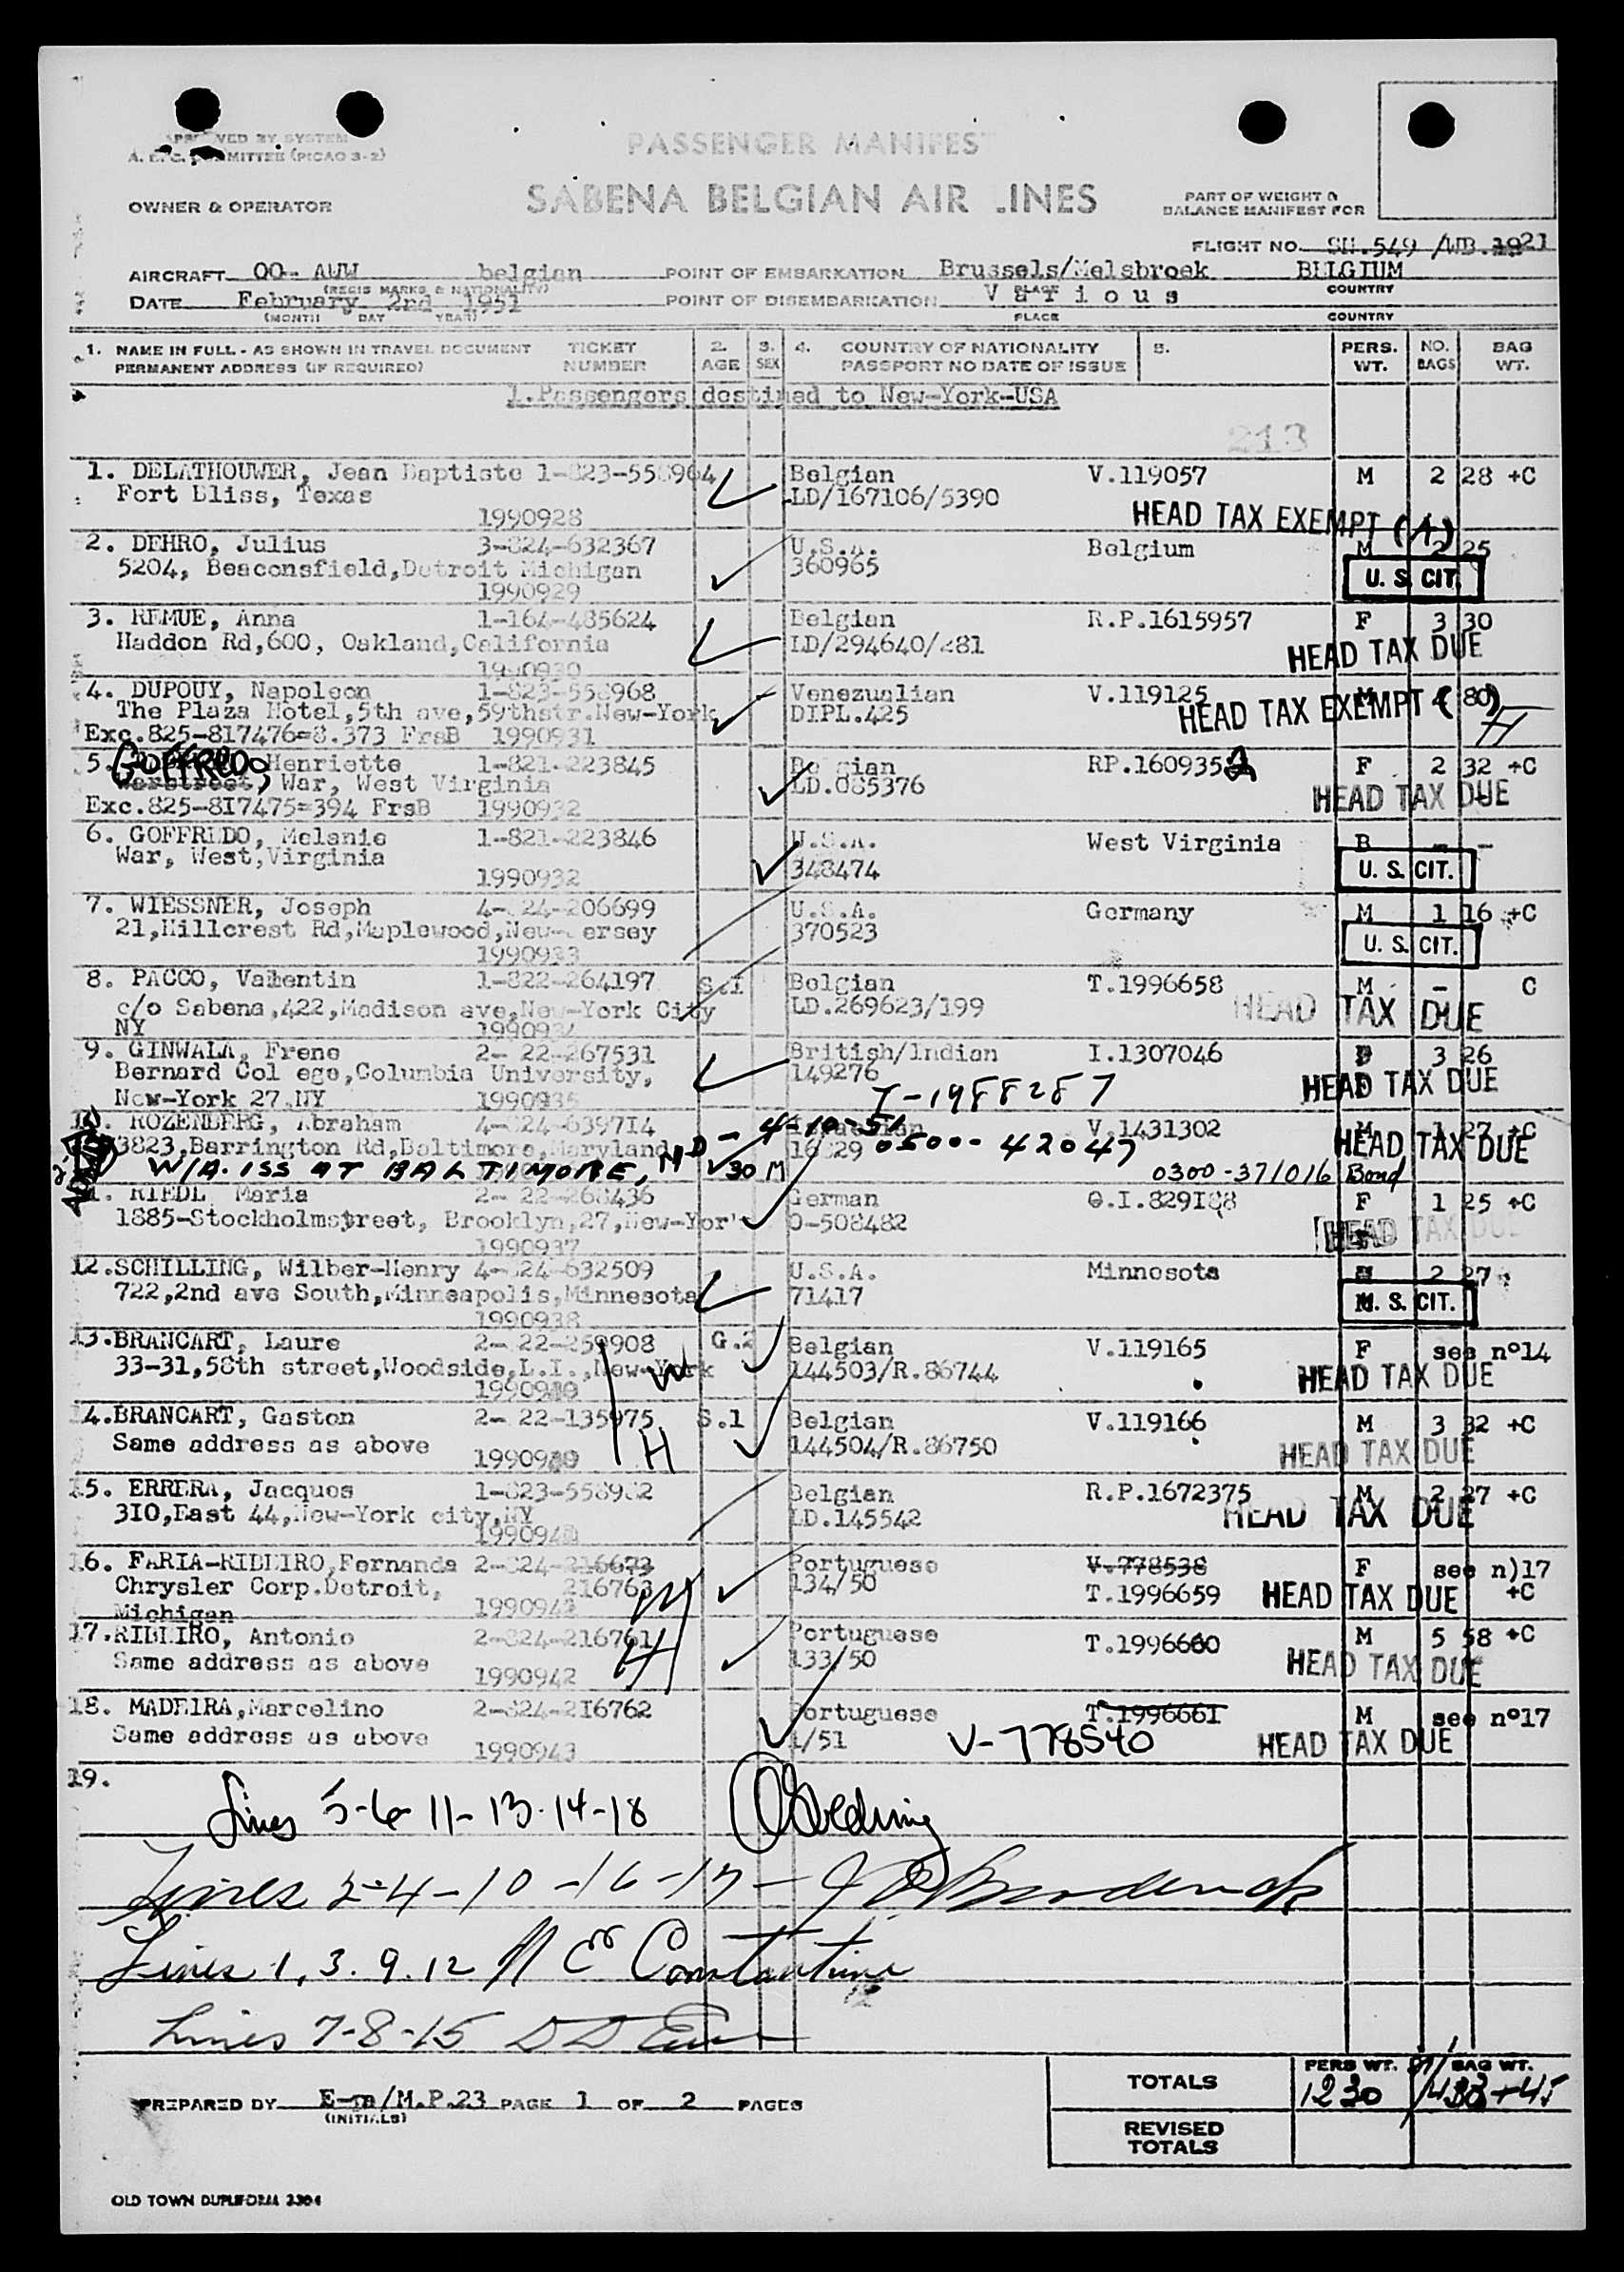 PASSENGER MANIFEST
A. T. C. COMMITTEE (PICAO 3-2)
SABENA BELGIAN AIR LINES
OWNER & OPERATOR
PART OF WEIGHT &
BALANCE MANIFEST FOR
FLIGHT NO. SN.549 /WB.1921
AIRCRAFT OO- AWW belgian POINT OF EMBARKATION Brussels/Melsbroek BELGIUM
(REGIS MARKS & NATIONALITY) PLACE COUNTRY
DATE February 2nd 1951 POINT OF DISEMBARKATION Various
(MONTH DAY YEAR) PLACE COUNTRY
1. NAME IN FULL - AS SHOWN IN TRAVEL DOCUMENT TICKET 2. 3. 4. COUNTRY OF NATIONALITY 5. PERS. NO. BAG
PERMANENT ADDRESS (IF REQUIRED) NUMBER AGE SEX PASSPORT NO DATE OF ISSUE WT. BAGS WT.
1.Passengers destined to New-York-USA
213
1. DELATHOUWER, Jean Baptiste 1-823-558964 Belgian V.119057 M 2 28 +C
Fort Bliss, Texas LD/167106/5390
1990928 HEAD TAX EXEMPT (A)
2. DEHRO, Julius 3-824-632367 U.S.A. Belgium M 2 25
5204, Beaconsfield,Detroit Michigan 360965 U. S. CIT.
1990929
3. REMUE, Anna 1-164-485624 Belgian R.P.1615957 F 3 30
Haddon Rd,600, Oakland,California LD/294640/281 HEAD TAX DUE
1990930
4. DUPOUY, Napoleon 1-823-558968 Venezuelian V.119125 M 4 80
The Plaza Hotel,5th ave,59thstr.New-York DIPL.425 HEAD TAX EXEMPT ( )
Exc.825-817476=8.373 FrsB 1990931 H
5. GOFFREDO, Henriette 1-821-223845 Belgian RP.1609352 F 2 32 +C
Warstreet, War, West Virginia LD.085376 HEAD TAX DUE
Exc.825-817475=394 FrsB 1990932
6. GOFFREDO, Melanie 1-821-223846 U.S.A. West Virginia B - -
War, West,Virginia 348474 U. S. CIT.
1990932
7. WIESSNER, Joseph 4-824-206699 U.S.A. Germany M 1 16 +C
21,Hillcrest Rd,Maplewood,New-Jersey 370523 U. S. CIT.
1990933
8. PACCO, Valentin 1-822-264197 S.1 Belgian T.1996658 M - C
c/o Sabena,422,Madison ave,New-York City LD.269623/199 HEAD TAX DUE
NY 1990934
9. GINWALA, Frene 2- 22-267531 British/Indian I.1307046 F 3 26
Bernard Col ege,Columbia University, 149276 HEAD TAX DUE
New-York 27.NY 1990935 T-1988287
10. ROZENBERG, Abraham 4-824-639714 V.1431302 M 1 27 +C
3823,Barrington Rd,Baltimore,Maryland 4-10-51 0500-42047 HEAD TAX DUE
W/A. ISS AT BALTIMORE, MD - 30 M 0300-371016 Bond
11. RIEDL Maria 2- 22-268436 German O.I.829188 F 1 25 +C
1885-Stockholmstreet, Brooklyn,27,New-York 0-508482 HEAD TAX DUE
1990937
12.SCHILLING, Wilber-Henry 4-824-632509 U.S.A. Minnesota M 2 27
722,2nd ave South,Minneapolis,Minnesota 71417 U. S. CIT.
1990938
13.BRANCART, Laure 2- 22-259908 G.2 Belgian V.119165 F see n°14
33-31,58th street,Woodside,L.I.,New-York W 144503/R.86744 HEAD TAX DUE
14.BRANCART, Gaston 2- 22-135975 S.1 Belgian V.119166 M 3 32 +C
Same address as above H 144504/R.86750 HEAD TAX DUE
15. ERRERA, Jacques 1-823-558982 Belgian R.P.1672375 M 2 27 +C
310,East 44,New-York city,NY LD.145542 HEAD TAX DUE
16. FARIA-RIBEIRO,Fernanda 2-824-216673 Portuguese V.778538 F see n)17
Chrysler Corp.Detroit, 216763 134/50 T.1996659 HEAD TAX DUE +C
Michigan 1990942
17.RIBEIRO, Antonio 2-824-216761 Portuguese T.1996660 M 5 58 +C
Same address as above H 133/50 HEAD TAX DUE
1990942
18. MADEIRA,Marcelino 2-824-216762 Portuguese T.1996661 M see n°17
Same address as above 1/51 V-778540 HEAD TAX DUE
1990943
19.
Lines 5-6-11-13-14-18
Lines 2-4-10-16-17- Broderick
Lines 1, 3. 9. 12 Constantine
Lines 7-8-15
TOTALS PERS WT. BAG WT.
1230 433+45
PREPARED BY E-m/M.P.23 PAGE 1 OF 2 PAGES
(INITIALS)
REVISED
TOTALS
OLD TOWN DUPLIFORM 3304